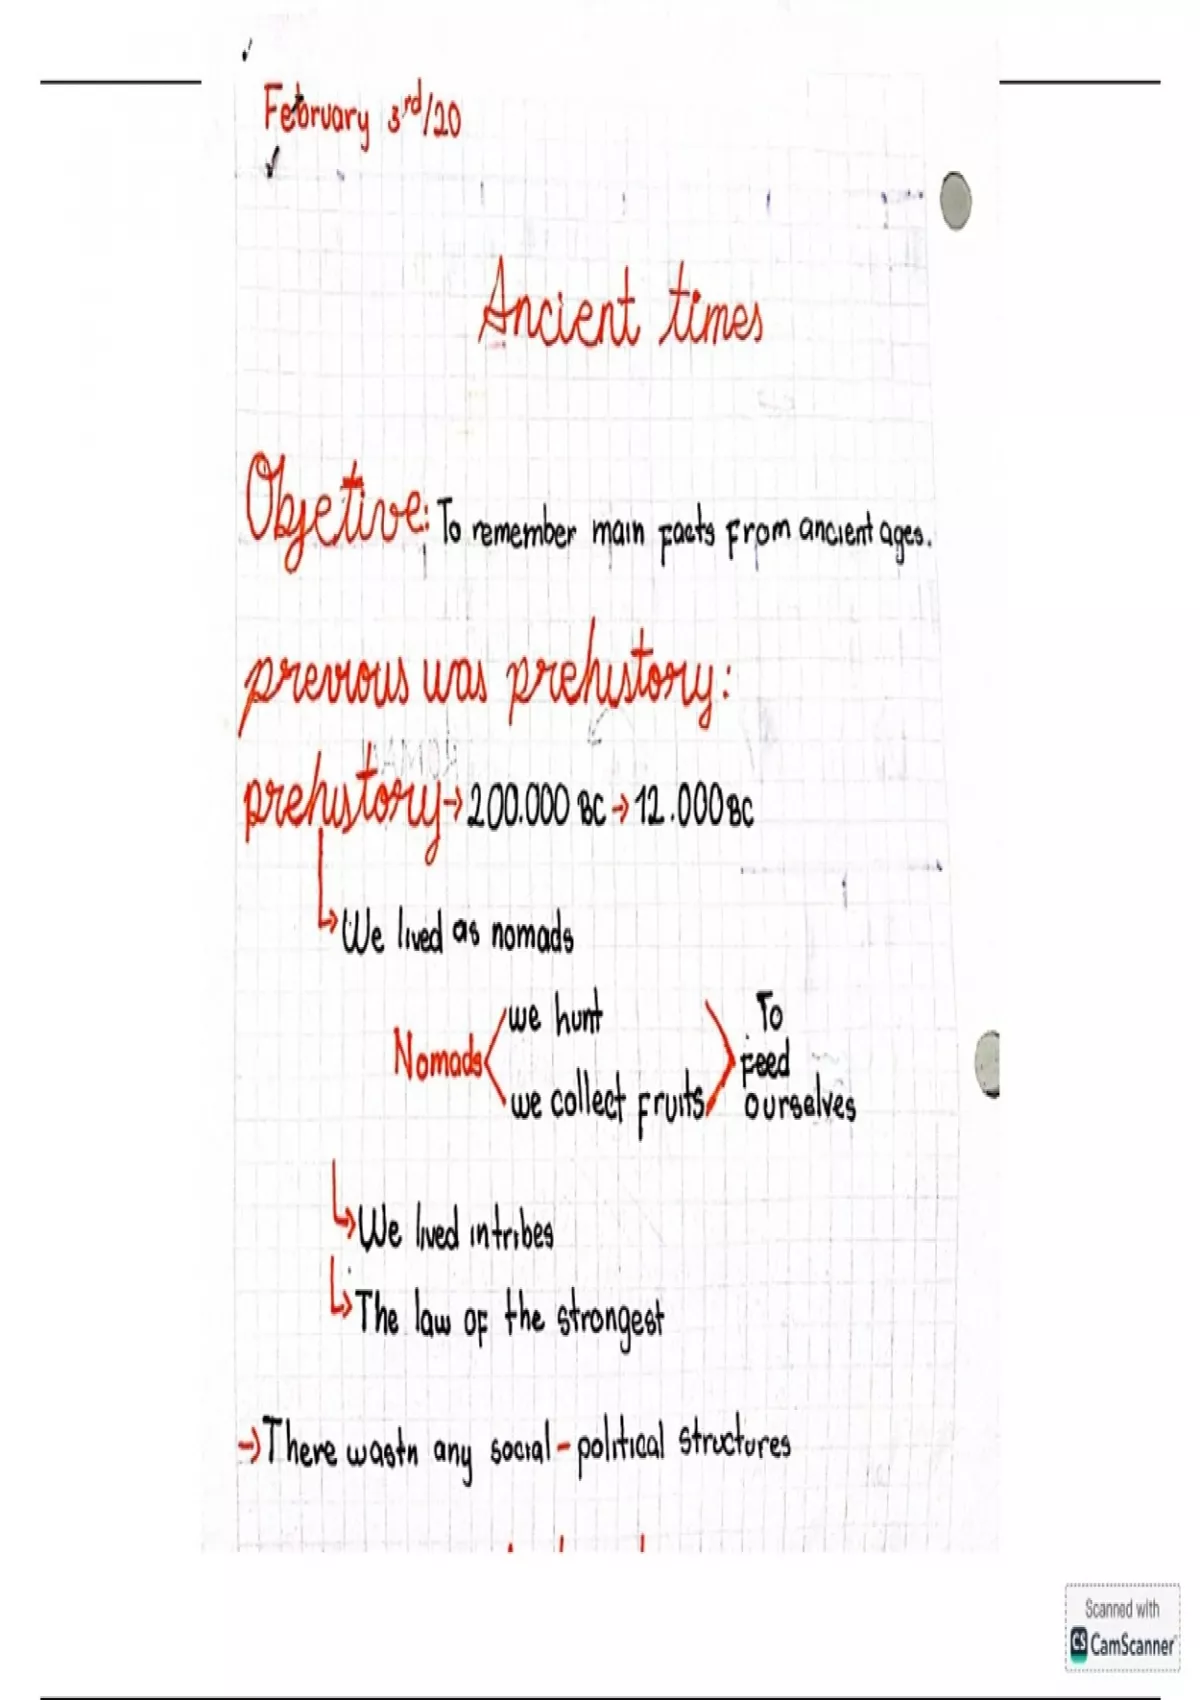 February 3rd/20
Ancient times
Objetive: To remember main facts from ancient ages.
previous was prehistory:
prehistory→200.000 BC→12.000BC
We lived as nomads
we hunt
Nomads
we collect fruits
To
feed
ourselves
We lived in tribes
The law of the strongest
→There wastn any social-political structures
Scanned with
CS CamScanner